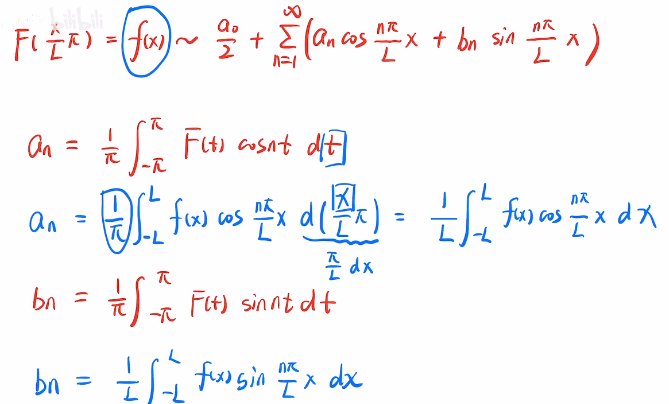 bilibili
F(x/L π) = f(x) ~ a₀/2 + ∑_{n=1}^{∞} (aₙ cos nπ/L x + bₙ sin nπ/L x)
aₙ = 1/π ∫_{-π}^{π} F(t) cosnt dt
aₙ = 1/π ∫_{-L}^{L} f(x) cos nπ/L x d(x/L π) = 1/L ∫_{-L}^{L} f(x) cos nπ/L x dx
π/L dx
bₙ = 1/π ∫_{-π}^{π} F(t) sinnt dt
bₙ = 1/L ∫_{-L}^{L} f(x) sin nπ/L x dx